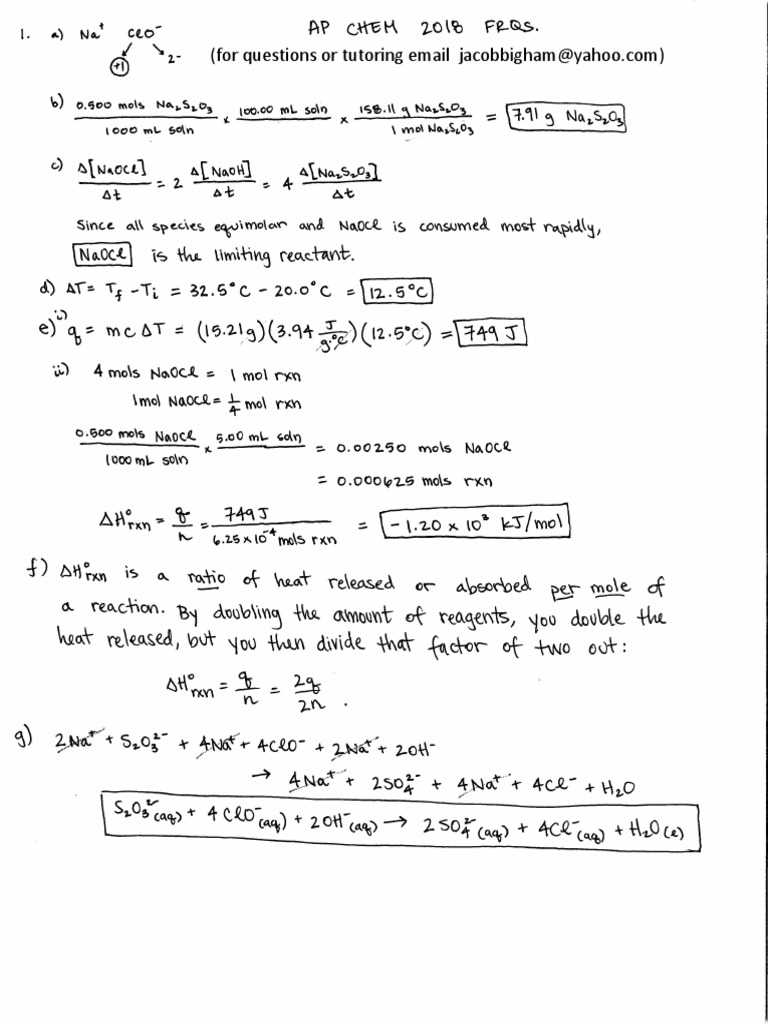 AP CHEM 2018 FRQS.
1. a) Na⁺ ClO⁻
+1 2-
(for questions or tutoring email jacobbigham@yahoo.com)
b) 0.500 mols Na₂S₂O₃ / 1000 mL soln × 100.00 mL soln × 158.11 g Na₂S₂O₃ / 1 mol Na₂S₂O₃ = 7.91 g Na₂S₂O₃
c) Δ[NaOCl] / Δt = 2 Δ[NaOH] / Δt = 4 Δ[Na₂S₂O₃] / Δt
Since all species equimolar and NaOCl is consumed most rapidly,
NaOCl is the limiting reactant.
d) ΔT = Tf - Ti = 32.5°C - 20.0°C = 12.5°C
e) i) q = mcΔT = (15.21g)(3.94 J / g·°C)(12.5°C) = 749 J
ii) 4 mols NaOCl = 1 mol rxn
1 mol NaOCl = 1/4 mol rxn
0.500 mols NaOCl / 1000 mL soln × 5.00 mL soln = 0.00250 mols NaOCl
= 0.000625 mols rxn
ΔH°rxn = q / n = 749 J / 6.25×10⁻⁴ mols rxn = -1.20 × 10³ kJ/mol
f) ΔH°rxn is a ratio of heat released or absorbed per mole of
a reaction. By doubling the amount of reagents, you double the
heat released, but you then divide that factor of two out:
ΔH°rxn = q / n = 2q / 2n .
g) 2Na⁺ + S₂O₃²⁻ + 4Na⁺ + 4ClO⁻ + 2Na⁺ + 2OH⁻
→ 4Na⁺ + 2SO₄²⁻ + 4Na⁺ + 4Cl⁻ + H₂O
S₂O₃²⁻(aq) + 4ClO⁻(aq) + 2OH⁻(aq) → 2SO₄²⁻(aq) + 4Cl⁻(aq) + H₂O(l)